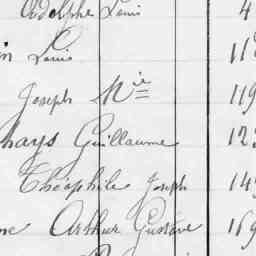 Adolphe Louis 4
in Louis 118
Joseph Mie 119
hays Guillaume 12
Théophile Joseph 14
ne Arthur Gustave 169